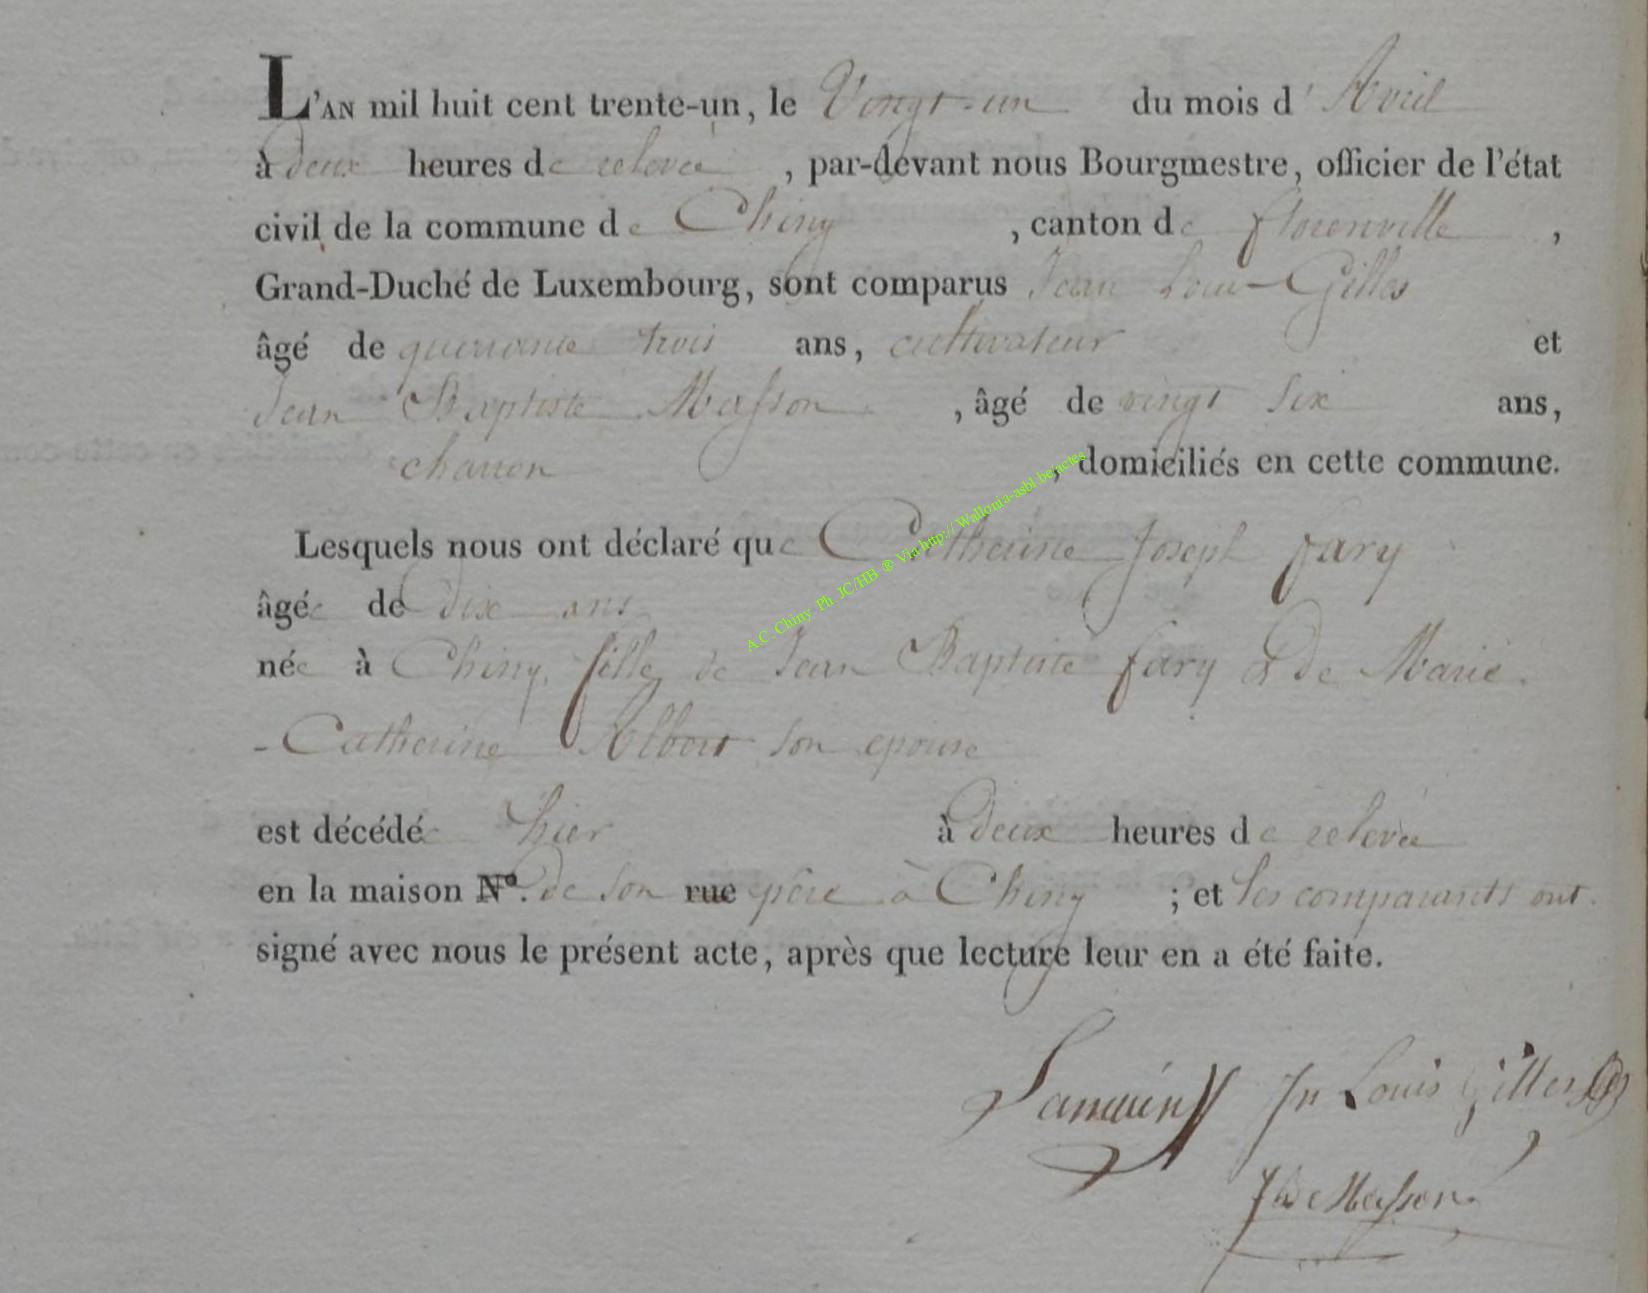 L'AN mil huit cent trente-un, le Vingt-un du mois d'Avril
à deux heures de relevée, par-devant nous Bourgmestre, officier de l'état
civil de la commune de Chiny, canton de florenville,
Grand-Duché de Luxembourg, sont comparus Jean Louis Gilles
âgé de quarante trois ans, cultivateur et
Jean Baptiste Masson, âgé de vingt six ans,
charron, domiciliés en cette commune.
Lesquels nous ont déclaré que Catherine Joseph fary
âgée de dix ans
née à Chiny, fille de Jean Baptiste fary & de Marie
- Catherine Albert son epouse
est décédée hier à deux heures de relevée
en la maison N°. de son rue père à Chiny ; et les comparants ont
signé avec nous le présent acte, après que lecture leur en a été faite.
Jn Louis Gilles
Masson
A.C. Chiny Ph JC/HB ® Via http://Wallonia-asbl.be/actes